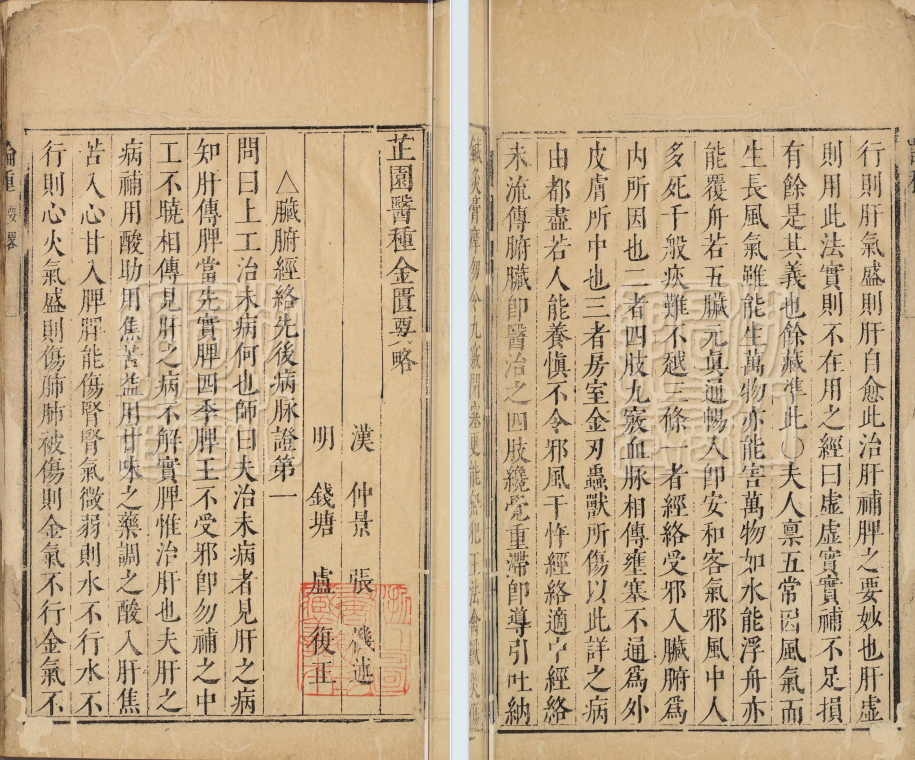 芷園醫種金匱要略
漢 仲景 張 機述
明 錢塘 盧 復正
△臟腑經絡先後病脉證第一
問曰上工治未病何也師曰夫治未病者見肝之病
知肝傳脾當先實脾四季脾王不受邪卽勿補之中
工不曉相傳見肝之病不解實脾惟治肝也夫肝之
病補用酸助用焦苦益用甘味之藥調之酸入肝焦
苦入心甘入脾脾能傷腎腎氣微弱則水不行水不
行則心火氣盛則傷肺肺被傷則金氣不行金氣不
行則肝氣盛則肝自愈此治肝補脾之要妙也肝虛
則用此法實則不在用之經曰虛虛實實補不足損
有餘是其義也餘藏準此○夫人稟五常因風氣而
生長風氣雖能生萬物亦能害萬物如水能浮舟亦
能覆舟若五臟元眞通暢人卽安和客氣邪風中人
多死千般疢難不越三條一者經絡受邪入臟腑爲
内所因也二者四肢九竅血脉相傳壅塞不通爲外
皮膚所中也三者房室金刃蟲獸所傷以此詳之病
由都盡若人能養愼不令邪風干忤經絡適中經絡
未流傳腑臟卽醫治之四肢纔覺重滯卽導引吐納
鍼灸膏摩勿令九竅閉塞更能無犯王法禽獸災傷